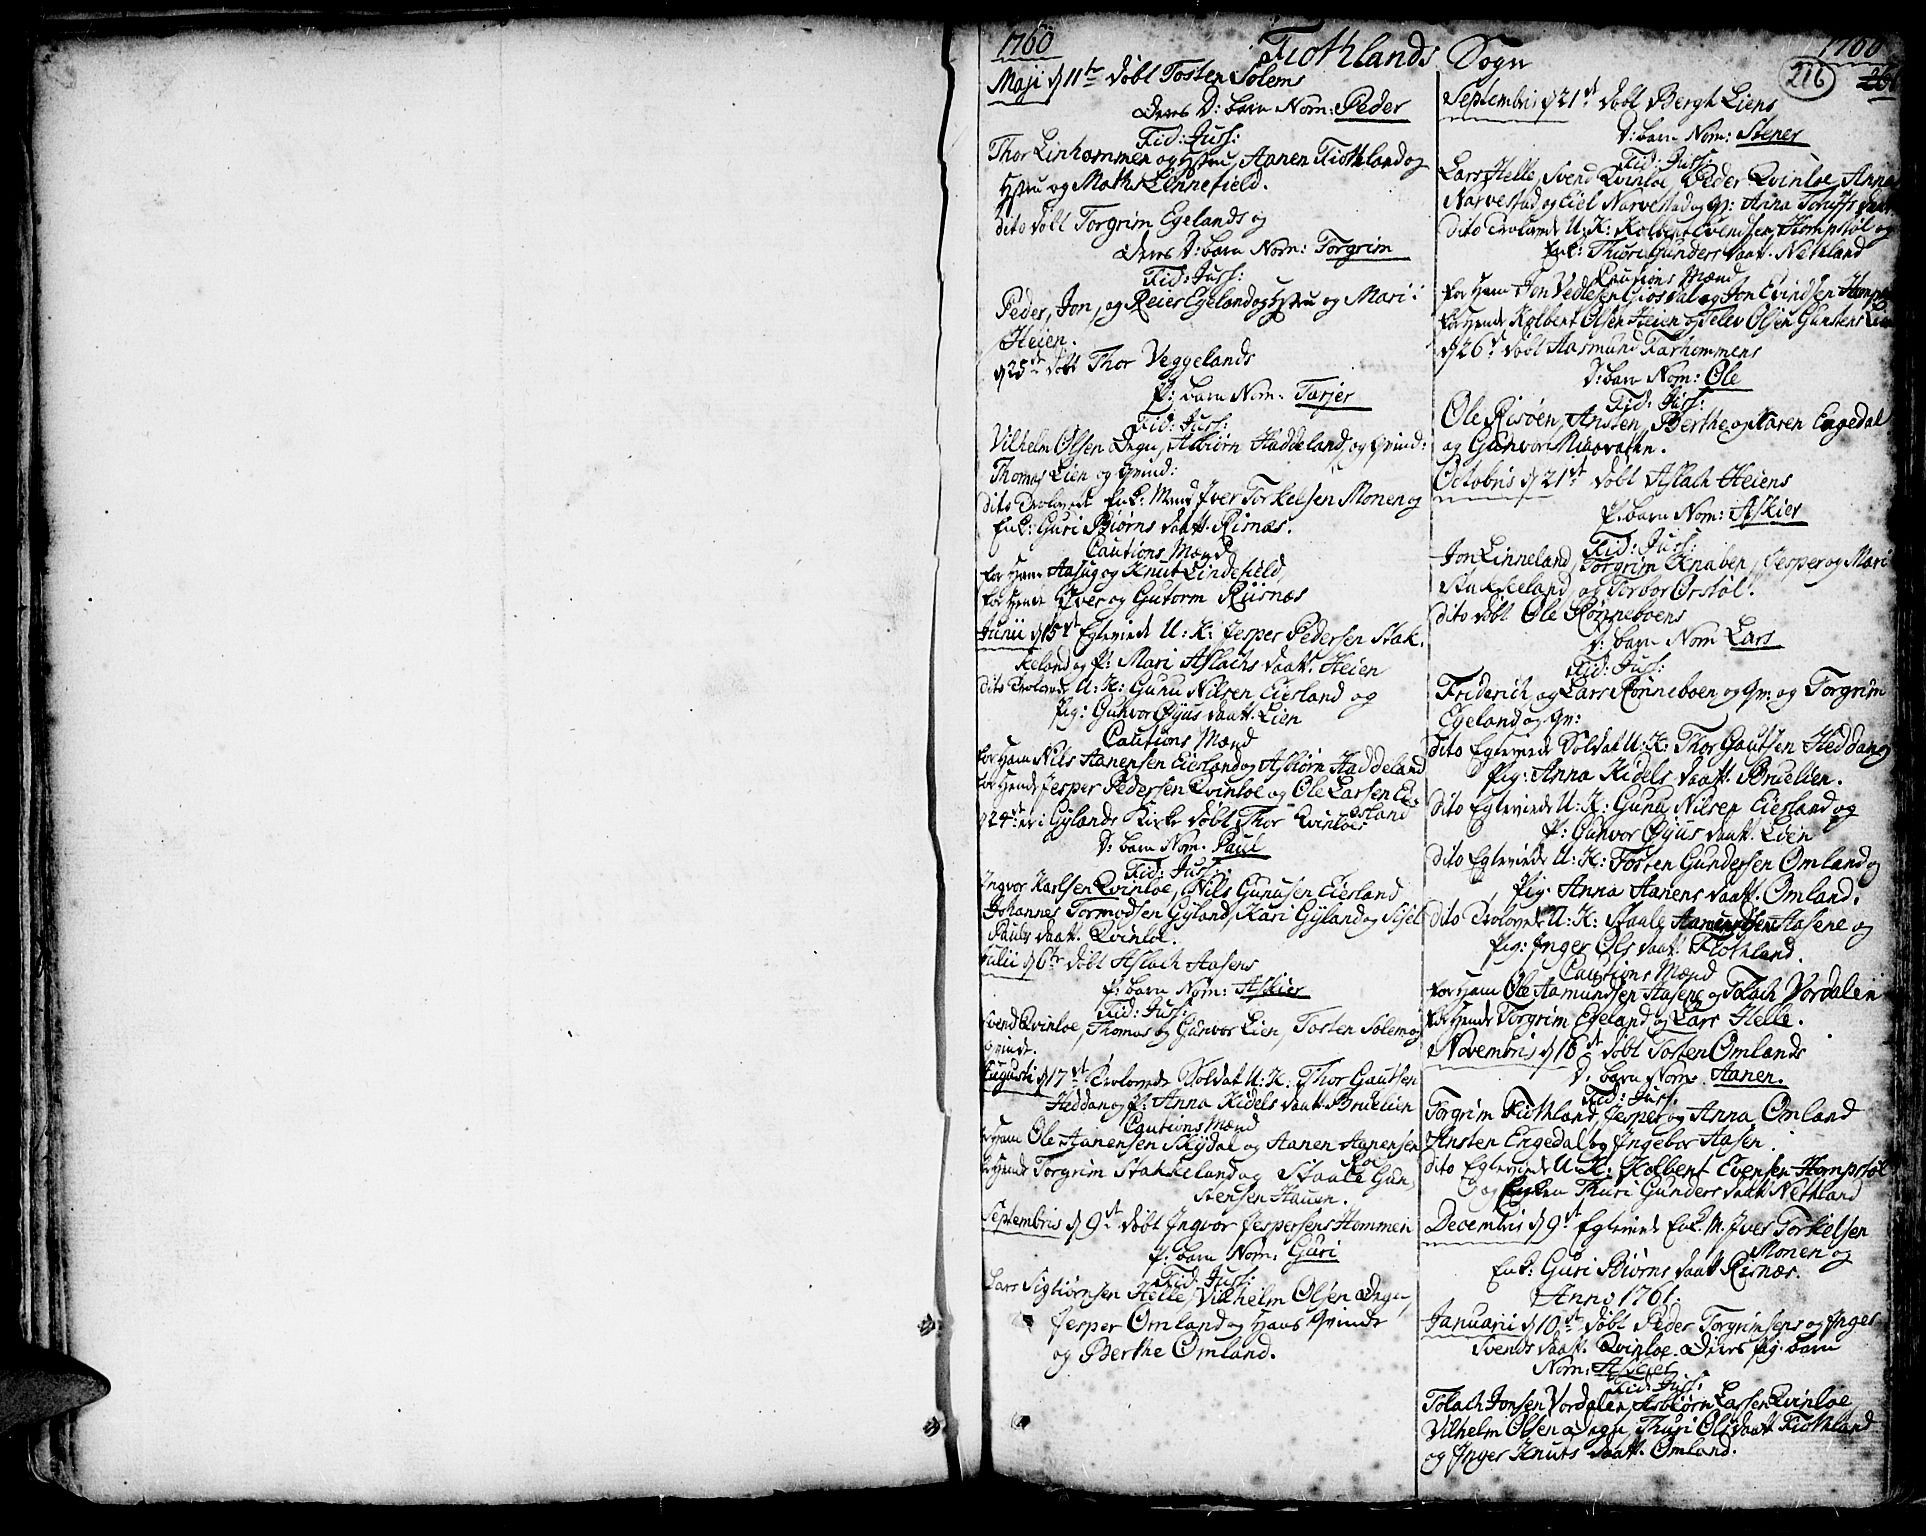 1760 Fiothlands Sogn 1760
216
Maji d 11te döbt Tosten Solems
Deres D: barn Nom: Peder
Fid: Juss:
Thor Linhommen og Hstru, Aanen Fiothland og
Hstru og Maths Linnefield.
dito döbt Torgrim Egelands og
Deres D: barn Nom: Torgrim
Fid: Juss:
Peder, Jon, og Reier Egeland og Hstru og Mari
Heien.
d 25de döbt Thor Veggelands
P: barn Nom: Tarjer
Fid: Juss:
Vilhelm Olsen Degn, Asbiörn Haddeland, og Qvind:
Thomas Lien og Qvind:
dito Trolovede Enk: Mand Iver Torkelsen Monen og
Enk: Guri Biörns daatt. Risnæs.
Cautions Mænd
for Ham Aasug og Knut Lindefield,
for Hende Iver og Gutorm Riisnæs
Junii d 15de Egteviede U: K: Jesper Pedersen Stak-
keland og P: Mari Aslachs daatt. Heien
dito Trolovede U: K: Gunu Nilsen Eiersland og
Pig: Gunvor Öyus daatt. Lien
Cautions Mænd
for Ham Nils Aanensen Eiersland og Asbiörn Haddeland
for Hende Jesper Pedersen Qvinloe og Ole Larsen Ei-
ersland
d 24de er i Gylands Kirke döbt Thor Qvinloes
D: barn Nom. Paul
Fid: Juss:
Ingvor Karlsen Qvinloe, Nils Gunusen Eiersland
Johannes Tormodsen Gyland, Kari Gyland og Sisel
Pauls daatt. Qvinloe.
Julii d 6te döbt Aslach Aasens
P: barn Nom: Askier
Fid: Juss:
Svend Qvinloe, Thomas og Gunvor Lien, Tosten Solem og
Qvinde.
Augusti d 17de Trolovede Soldat U: K. Thor Gautsen
Heddan og P: Anna Kidels daatt. Bruelien
Cautions Mænd
for Ham Ole Aanensen Skeydal og Aanen Aanensen
for Hende Torgrim Stakkeland og Staale Gun-
stensen Hauen.
Septembris d 9de döbt Ingvor Jespersens Hommen
P: barn Nom: Guri
Fid: Juss:
Lars Sigbiörnsen Helle, Vilhelm Olsen Degn,
Jesper Omland og Hans Qvinde
og Berthe Omland.
Septembris d 21de döbt Bergt Liens
D: barn Nom: Stener
Fid: Juss:
Lars Helle, Svend Qvinloe, Peder Qvinloe, Anna
Narvestad og Eiel Narvestad og Qv: Anna
dito Trolovede U: K: Kolbent Evendsen Hompstöl og
Enk: Thuri Gunders daatt. Netland
Cautions Mænd
for Ham Jon Vedlesen Giosdal og Jon Evindsen Homp
for Hende Kolbent Olsen Heien og Telev Olsen Gunstens
d 26de döbt Aasmund Farhommens
D: barn Nom: Ole
Fid: Juss:
Ole Risöen, Ansten, Berthe og Karen Engedal
og Gunvor
Octobris d 21de döbt Aslach Heiens
P: barn Nom: Askier
Fid: Juss:
Jon Linneland, Torgrim Knaben, Jesper og Mari
Stakkeland og Torbor Örstöl.
dito döbt Ole Rönneboens
D: barn Nom Lars
Fid: Juss:
Friderich og Lars Rönneboen og Qv: og Torgrim
Egeland og Qv:
dito Egteviede Soldat U: K: Thor Gautsen Heddan og
Pig: Anna Kidels daatt. Bruelien.
dito Egteviede U: K: Gunu Nilsen Eiersland og
P: Gunvor Öyus daatt. Lien
dito Egteviede U: K: Tosten Gundersen Omland og
Pig. Anna Aanens daatt. Omland.
dito Trolovede U: K: Staale Aamundsen Aasene og
Pig: Inger Ols daatt. Fiothland.
Cautions Mænd
for Ham Ole Aamundsen Aasene og Tolach Vordalen
for Hende Torgrim Egeland og Lars Helle.
Novembris d 16de döbt Tosten Omlands
D: barn Nom. Aanen.
Fid: Juss.
Torgrim Fiothland, Jesper og Anna Omland
Ansten Engedal og Ingebor Aasen.
dito Egteviede U: K: Kolbent Evensen Hompstöl
og Enken Thuri Gunders daatt. Netland
Decembris d 9de Egteviede Enk. M. Iver Torkelsen
Monen og
Enk: Guri Biörns daatt Risnæs.
Anno 1761:
Januarii d 10de döbt Peder Torgrimsens og Inger
Svends daatt. Qvinloe. Deres Pig. barn
Nom: Askier
Fid: Juss:
Tolach Jonsen Vordalen, Asbiörn Larsen Qvinloe
Vilhelm Olsen Degn, Thuri Ols daatt Fiothland
og Inger Knuts daatt. Omland.